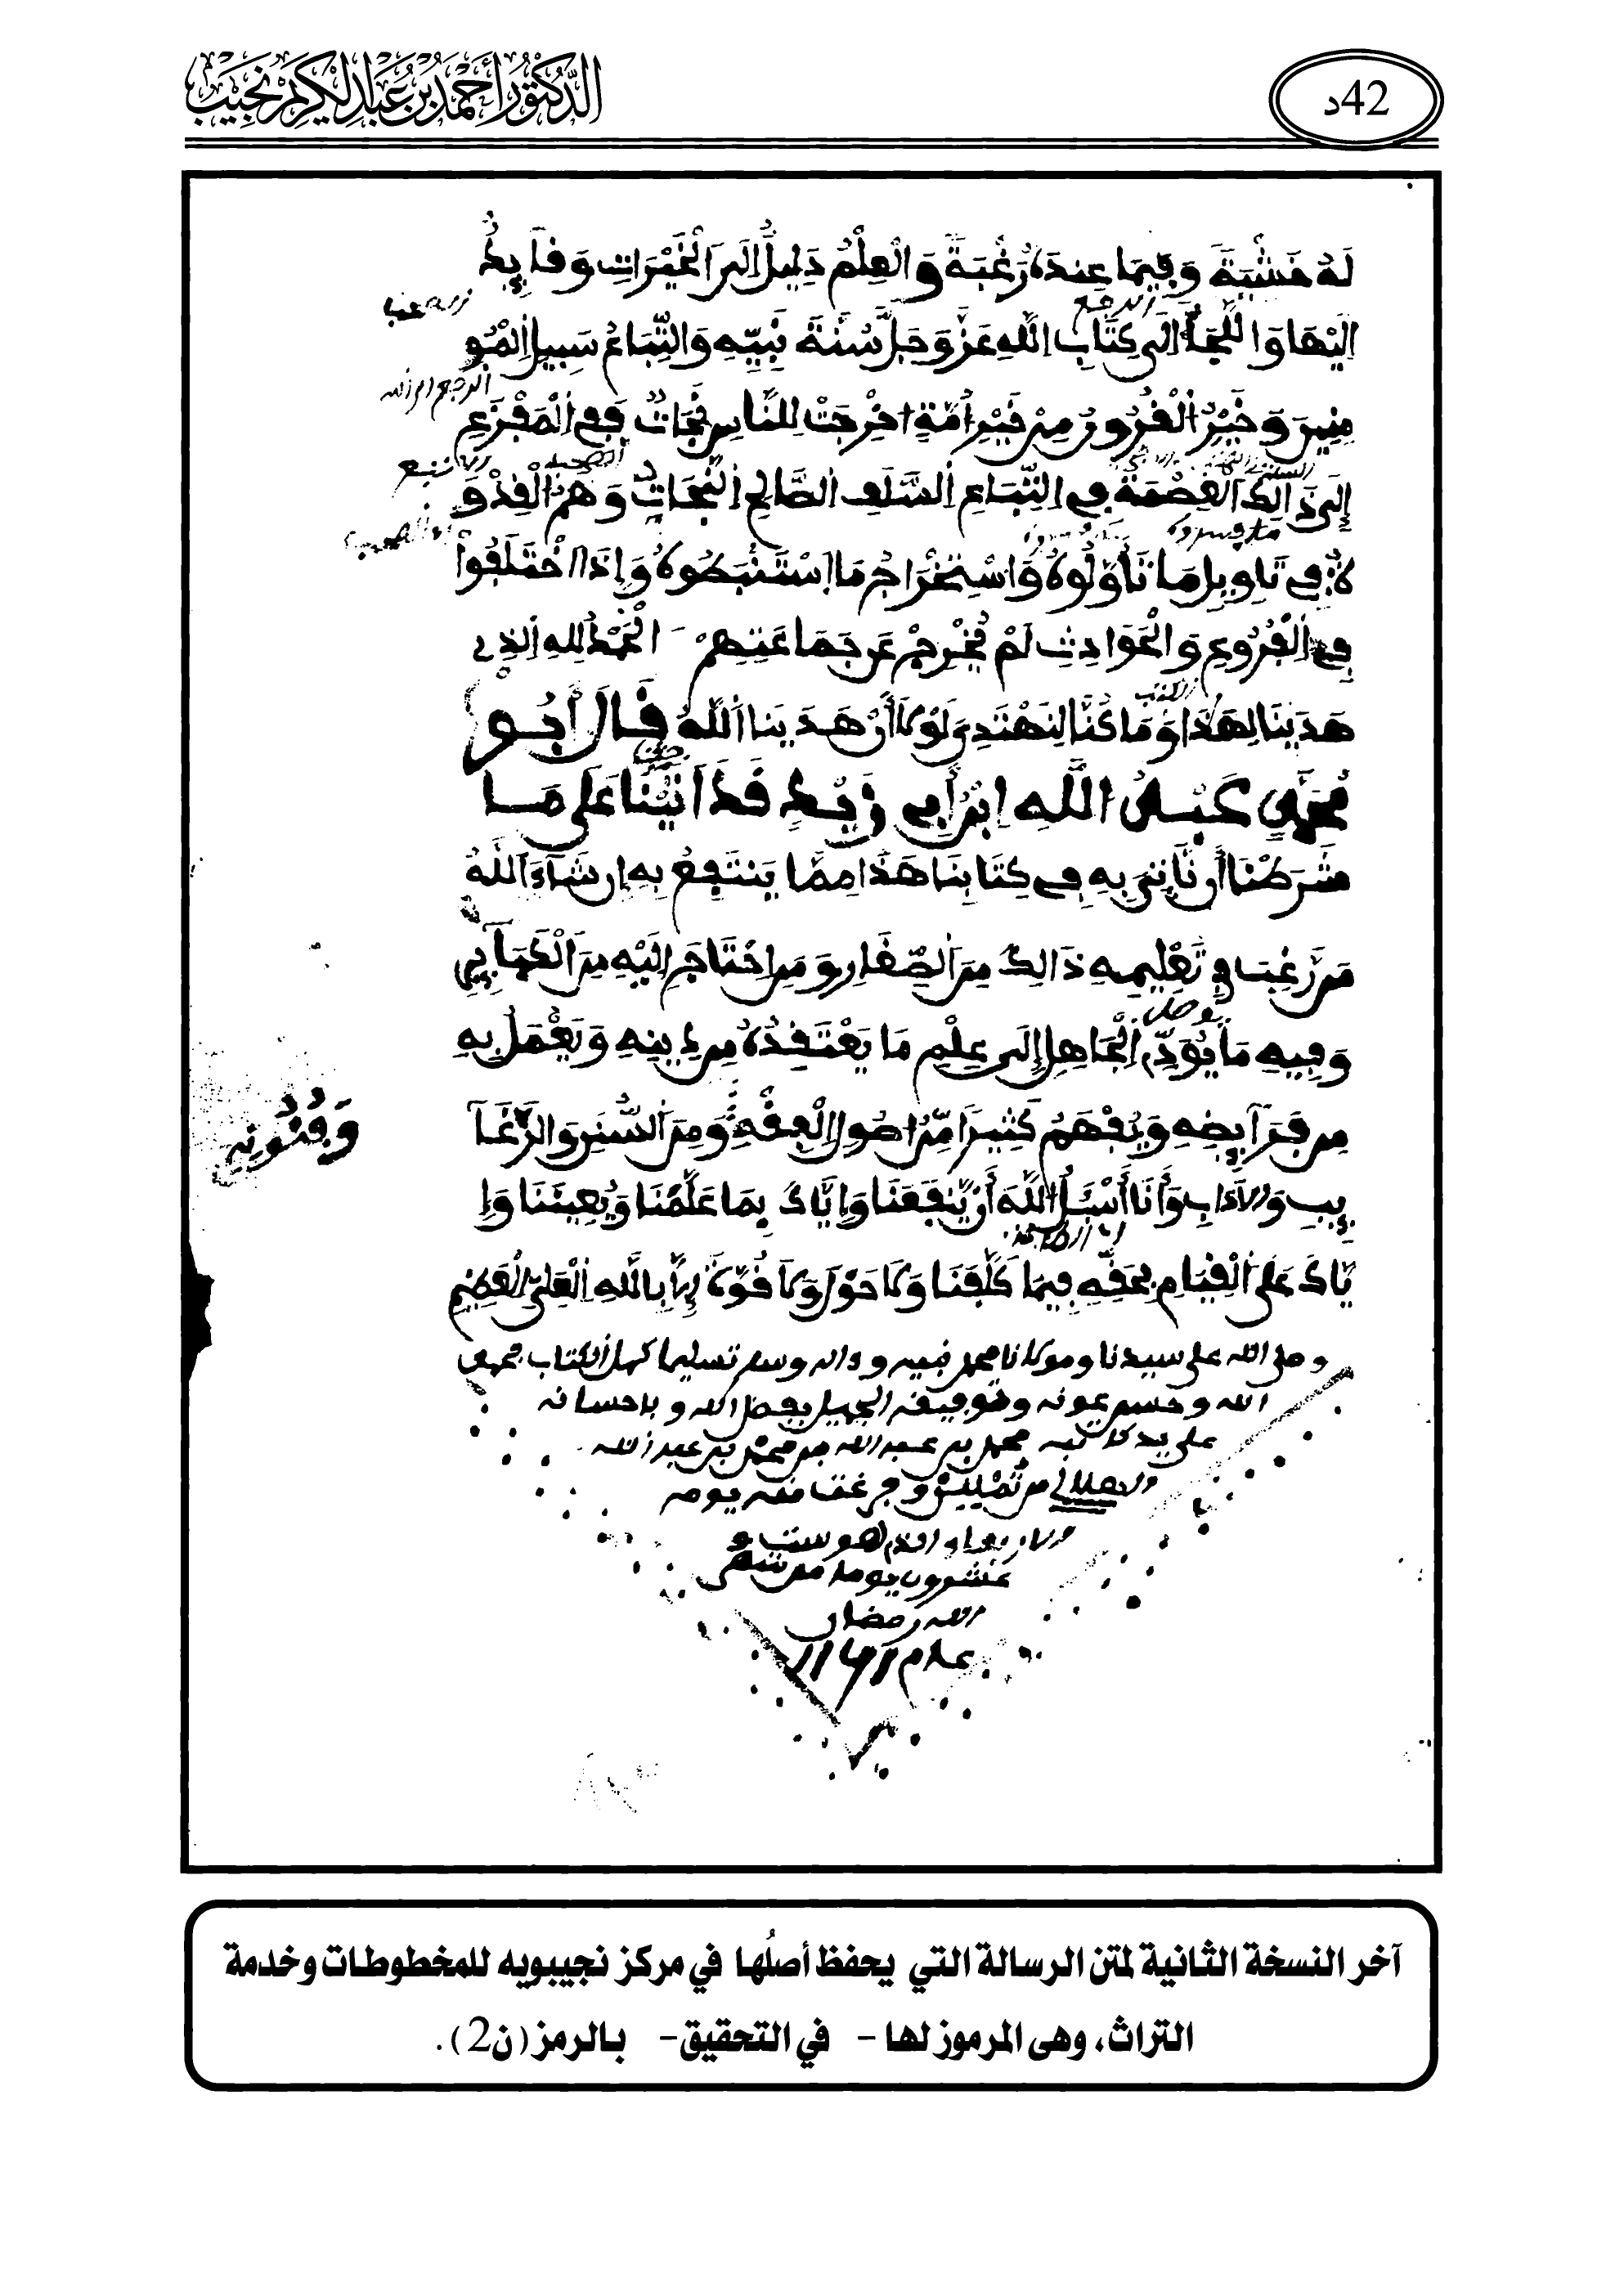 42د
الدكتور أحمد بن عبد الكريم نجيب
لَهُ خَشْيَةً وَفِيمَا عِندَهُ رَغْبَةً وَالْعِلْمُ دَلِيلٌ إِلَى الْخَيْرَاتِ وَقَآيِدٌ
إِلَيْهَا وَاللَّجَأُ إِلَى كِتَابِ اللهِ عَزَّ وَجَلَّ سُنَّةِ نَبِيِّهِ وَاتِّبَاعُ سَبِيلِ الْمُو
مِنِينَ وَخَيْرُ الْقُرُونِ مِنْ خَيْرِ أُمَّةٍ اخْرِجَتْ لِلنَّاسِ نَجَاةٌ فَفِي الْمَفْزَعِ
إِلَى ذَالِكَ الْعِصْمَةُ فِي اتِّبَاعِ السَّلَفِ الصَّالِحِ النَّجَاةُ وَهُمُ الْقِدْوَ
ةُ فِي تَاوِيلِ مَا تَأَوَّلُوهُ وَاسْتِخْرَاجِ مَا اسْتَنْبَطُوهُ وَإِذَا اخْتَلَفُوا
فِي الْفُرُوعِ وَالْحَوَادِثِ لَمْ يُخْرَجْ عَن جَمَاعَتِهِمْ الْحَمْدُ لِلهِ الذِي
هَدَيْنَا لِهَذَا وَمَا كُنَّا لِنَهْتَدِيَ لَوْلَا أَنْ هَدَيْنَا اللَّهُ قَالَ أَبُو
مُحَمَّدٍ عَبْدُ اللَّهِ ابْنُ أَبِي زَيْدٍ قَدْ أَتَيْنَا عَلَى مَا
شَرَطْنَا أَن نَّأْتِيَ بِهِ فِي كِتَابِنَا هَذَا مِمَّا يَنتَفِعُ بِهِ إِن شَآءَ اللَّهُ
مَن رَّغِبَ فِي تَعْلِيمِهِ ذَالِكَ مِنَ الصِّغَارِ وَمَنِ احْتَاجَ إِلَيْهِ مِنَ الْكِبَارِ
وَفِيهِ مَا يُوَدِّي الْجَاهِلَ إِلَى عِلْمِ مَا يَعْتَقِدُهُ مِن دِينِهِ وَيَعْمَلُ بِهِ
مِن فَرَآيِضِهِ وَيُفْهِمُ كَثِيرًا مِّنْ أُصُولِ الْفِقْهِ وَمِنَ السُّنَنِ وَالرَّغَآ
وَفُنُونِهِ
يِبِ وَالآدَابِ وَأَنَا أَسْئَلُ اللَّهَ أَنْ يَّنفَعَنَا وَإِيَّاكَ بِمَا عَلَّمَنَا وَيُعِينَنَا وَإِ
يَّاكَ عَلَى الْقِيَامِ بِحَقِّهِ فِيمَا كَلَّفَنَا وَلَا حَوْلَ وَلَا قُوَّةَ إِلَّا بِاللَّهِ الْعَلِيِّ الْعَظِيمِ
وصلى الله على سيدنا ومولانا محمد نبيه وءاله وسلم تسليما كمل الكتاب بحمد
الله وحسن عونه وتوفيقه الجميل بفضل الله وبإحسانه
على يد كاتبه محمد بن عبد الله بن محمد بن عبد الله
وفرغت منه يومه
الاربعاء الذي هو ست و
عشرون يوما من شهر
الله رمضان
عام
آخر النسخة الثانية لمتن الرسالة التي يحفظ أصلُها في مركز نجيبويه للمخطوطات وخدمة
التراث، وهى المرموز لها - في التحقيق- بالرمز (ن2).